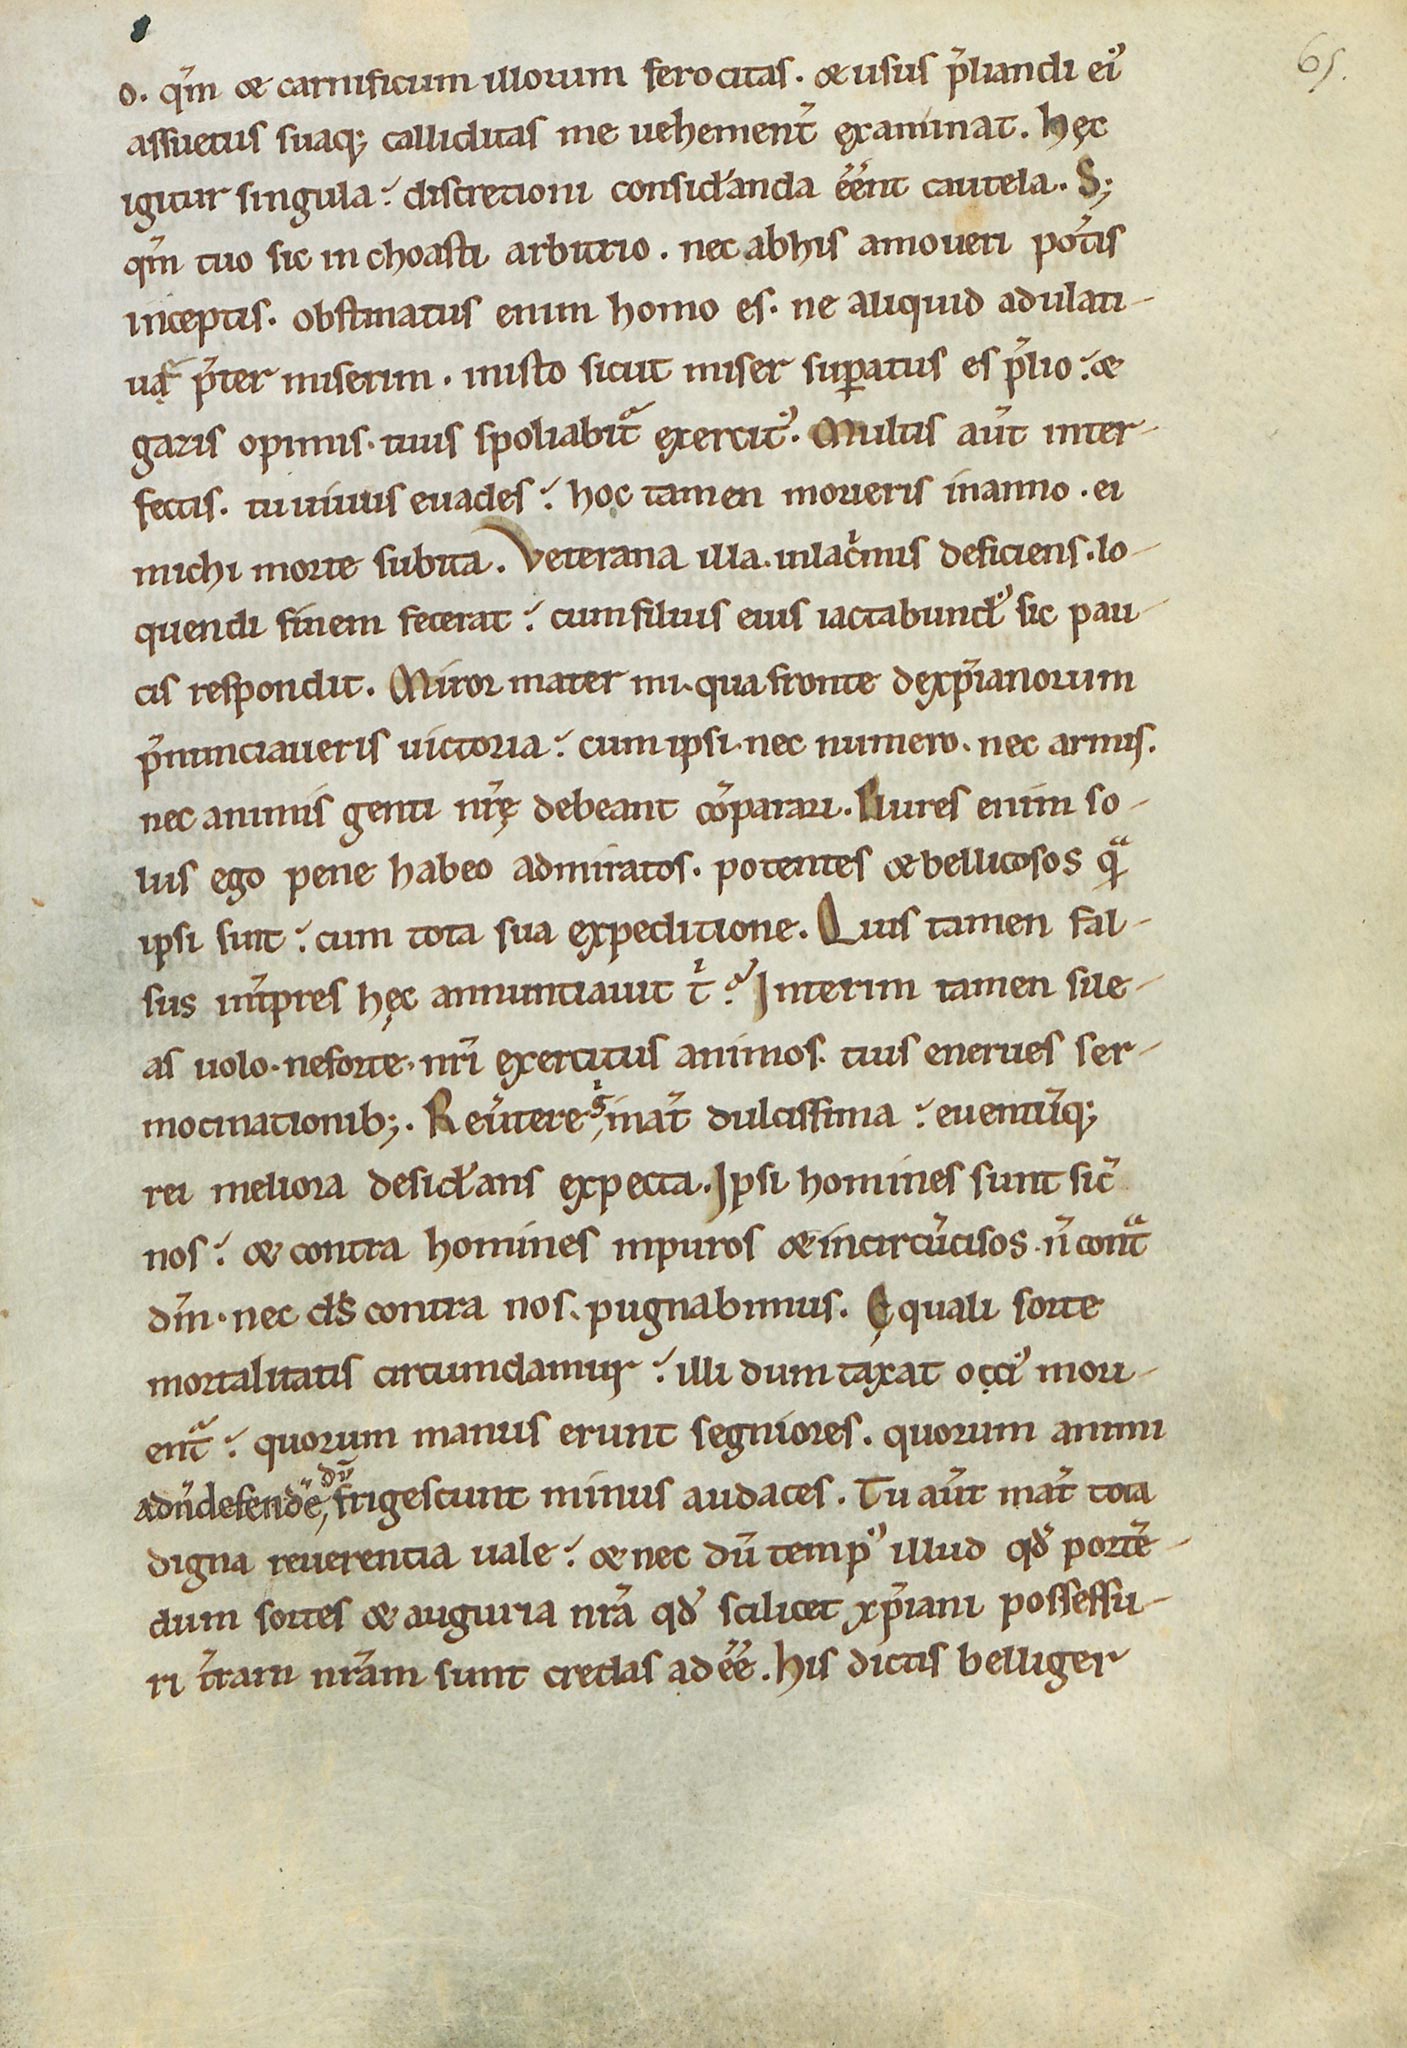 65.
o. qm̄ & carnificum illorum ferocitas. & usus p̄liandi ei᷒
assuetus suaq; calliditas me uehement̄ examinat. hęc
igitur singula. discretioni consid̄anda eēnt cautela. S;
qm̄ tuo sic inchoasti arbitrio. nec abhis amoueri pot̄is
inceptis. obstinatus enim homo es. ne aliquid adulati-
uā p̄ter miserim. inisto sicut miser suꝑatus es p̄lio. &
garis opimis. tuus spoliabit̄ exercit᷒. Multis aūt inter-
fectis. tu uiuus euades. hoc tamen moueris inanno. ei
michi morte subita. Veterana illa. inlac̄mis deficiens. lo-
quendi finem fecerat. cumfilius eius iactabund᷒ sic pau-
cis respondit. Miror mater mi. qua fronte dexp̄ianorum
p̄nunciaueris uictoria. cumipsi. nec numero. nec armis.
nec animis genti nr̄ę debeant cōparari. Plures enim so-
lus ego pene habeo admiratos. potentes & bellicosos qᵃ̄
ipsi sunt. cum tota sua expeditione. Quis tamen fal-
sus int̄pres hęc annuntiauit tⁱ. Interim tamen sile-
as uolo. neforte. nr̄i exercitus animos. tuis enerues ser-
mocinationib;. Reūtere gⁱ, mat̄ dulcissima. euentūq;
rei meliora desid̄ans expecta. Ipsi homines sunt sic̄
nos. & contra homines inpuros & incircūcisos. n̄ contᵃ
dm̄. nec ds̄ contra nos. pugnabimus. Ęquali sorte
mortalitatis circumdamur. illi dum taxat occi᷒ mori-
ent̄. quorum manus erunt segniores. quorum animi
adn̄defend̄e, dū frigescunt minus audaces. Tu aūt mat̄ tota
digna reuerentia uale. & nec dū temp᷒ illud qd̄ portē-
dum sortes & auguria nr̄a qd̄ scilicet xp̄iani possessu-
ri t̄ram nr̄am sunt credas adeē. his dictis belliger